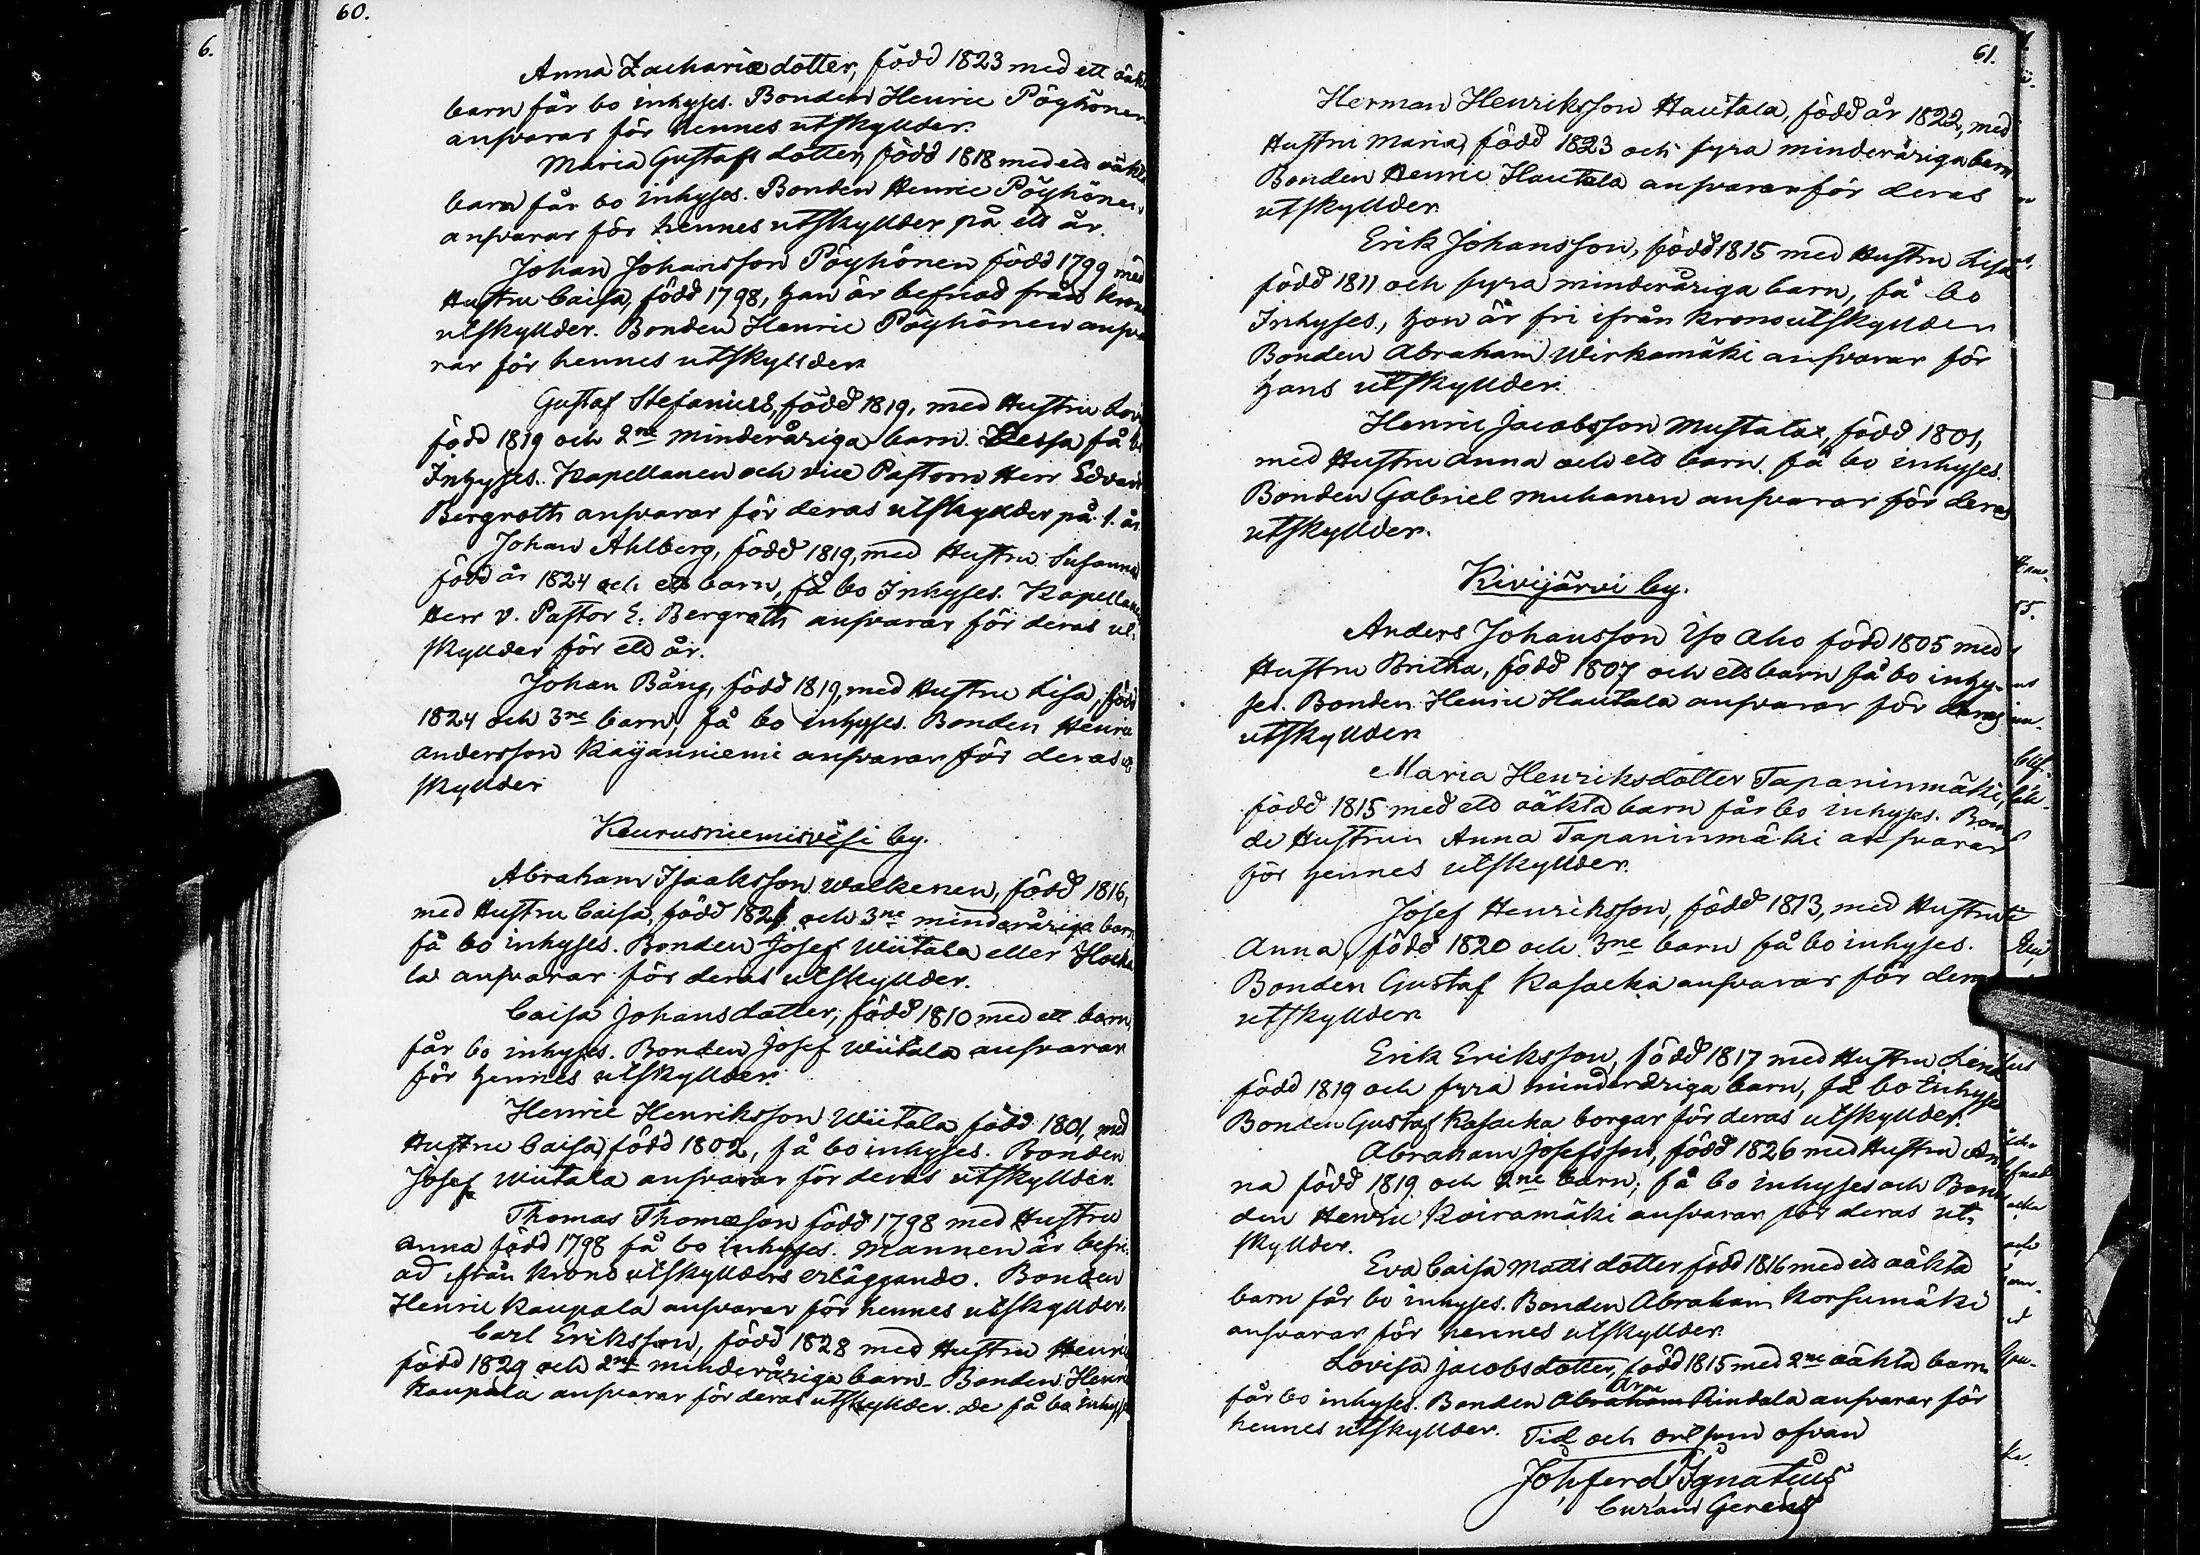 60.
Anna Zachariædotter, född 1823 med ett oäkt
barn får bo inhyses. Bonden Henric Pöyhönen
ansvarar för hennes utskyllder.
Maria Gustafsdotter, född 1818 med ett oäkta
barn får bo inhyses. Bonden Henric Pöyhönen,
ansvarar för hennes utskyllder på ett år.
Johan Johansson Pöyhönen född 1799 med
Hustru Caisa, född 1798, han är befriad från Krono
utskyllder. Bonden Henric Pöyhönen ansva
rar för hennes utskyllder.
Gustaf Stefanius, född 1819, med Hustru Lovi
född 1819 och 2ne minderåriga barn. Dessa få bo
Inhyses. Kapellanen och vice Pastorn Herr Edvard
Bergroth ansvarar för deras utskyllder på 1. år
Johan Ahlberg, född 1819, med Hustru Susanna
född år 1824 och ett barn, få bo Inhyses. Kapellanen
Herr V. Pastor E. Bergroth ansvarar för deras ut-
skyllder för ett år.
Johan Bång, född 1819, med Hustru Lisa, född
1824 och 3ne barn, få bo inhyses. Bonden Henric
Andersson Käyänniemi ansvarar för deras ut
skyllder
Keurusniemisvesi by.
Abraham Isaaksson Walkenen, född 1816,
med Hustru Caisa, född 182 och 3ne minderåriga barn
få bo inhyses. Bonden Josef Wiitala eller Hocka
la ansvarar för deras utskyllder.
Caisa Johansdotter, född 1810 med ett barn,
får bo inhyses. Bonden Josef Wiitala ansvarar
för hennes utskyllder.
Henric Henriksson Wiitala född 1801, med
Hustru Caisa, född 1802, få bo inhyses. Bonden
Josef Wiitala ansvarar för deras utskyllder.
Thomas Thomæson född 1798 med Hustru
Anna född 1798 få bo inhyses. Mannen är befri-
ad ifrån Krono utskyllders erläggande. Bonden
Henric Kaupala ansvarar för hennes utskyllder.
Carl Eriksson, född 1828 med Hustru Henri
född 1829 och 2ne minderåriga barn. Bonden Henric
Kaupala ansvarar för deras utskyllder. De få bo inhyses
61.
Herman Henriksson Hautala, född år 1822, med
Hustru Maria, född 1823 och fyra minderåriga barn
Bonden Henric Hautala ansvarar för deras
utskyllder
Erik Johansson, född 1815 med Hustru Lisa
född 1811 och fyra minderåriga barn, få bo
Inhyses, hon är fri ifrån Kronoutskyllder
Bonden Abraham Wirkamäki ansvarar för
hans utskyllder.
Henric Jacobsson Mustalax, född 1801,
med Hustru Anna och ett barn, få bo inhyses.
Bonden Gabriel Muhanen ansvarar för deras
utskyllder.
Kivijärvi by.
Anders Johansson Iso Aho född 1805 med
Hustru Britha, född 1807 och ett barn få bo inhy-
ses. Bonden Henric Hautala ansvarar för deras
utskyllder
Maria Henriksdotter Tapaninmäki,
född 1815 med ett oäkta barn får bo inhyses. Bon
de Hustrun Anna Tapaninmäki ansvarar
för hennes utskyllder.
Josef Henriksson, född 1813, med Hustru
Anna, född 1820 och 3ne barn få bo inhyses.
Bonden Gustaf Kasacka ansvarar för deras
utskyllder
Erik Eriksson, född 1817 med Hustru Lena
född 1819 och fyra minderåriga barn, få bo Inhyses
Bonden Gustaf Kasacka borgar för deras utskyllder.
Abraham Josefsson, född 1826 med Hustru An
na född 1819 och 2ne barn, få bo inhyses och Bon
den Henric Koiramäki ansvarar för deras ut-
skyllder.
Eva Caisa Mattsdotter född 1816 med ett oäkta
barn får bo inhyses. Bonden Abraham Korsumäki
ansvarar för hennes utskyllder
Lovisa Jacobsdotter, född 1815 med 2ne oäkta barn
får bo inhyses. Bonden Abraham Rindala ansvarar för
hennes utskyllder.
Tid och ort som ofvan
Joh. ferd. Ignatius
Curam Gerens